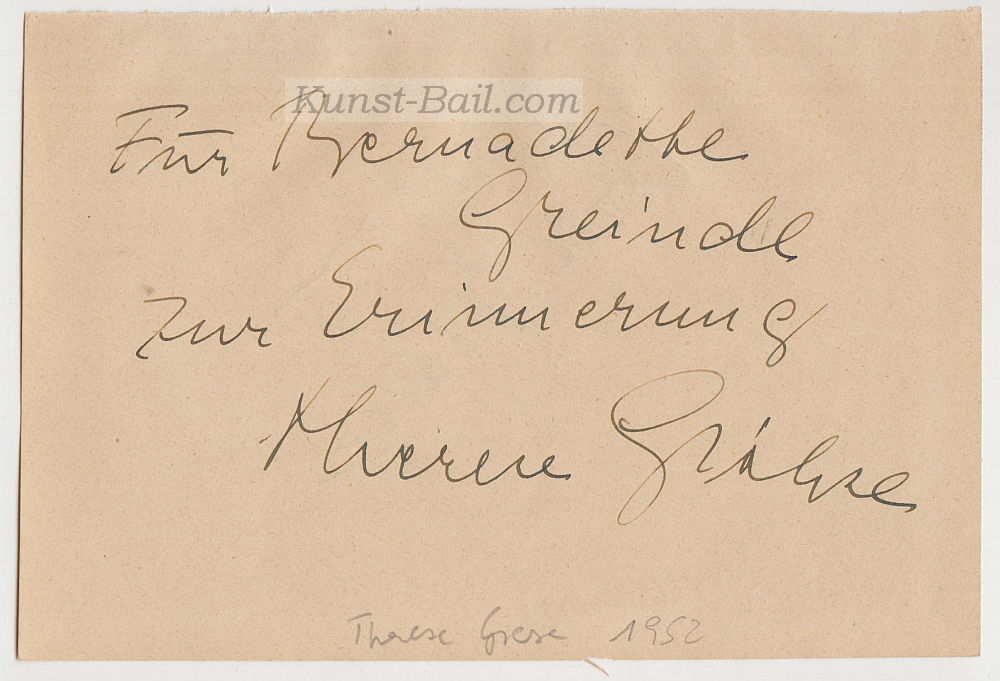 Kunst-Bail.com
Für Bernadette
Greindl
zur Erinnerung
Therese Giehse
Therese Giese 1952